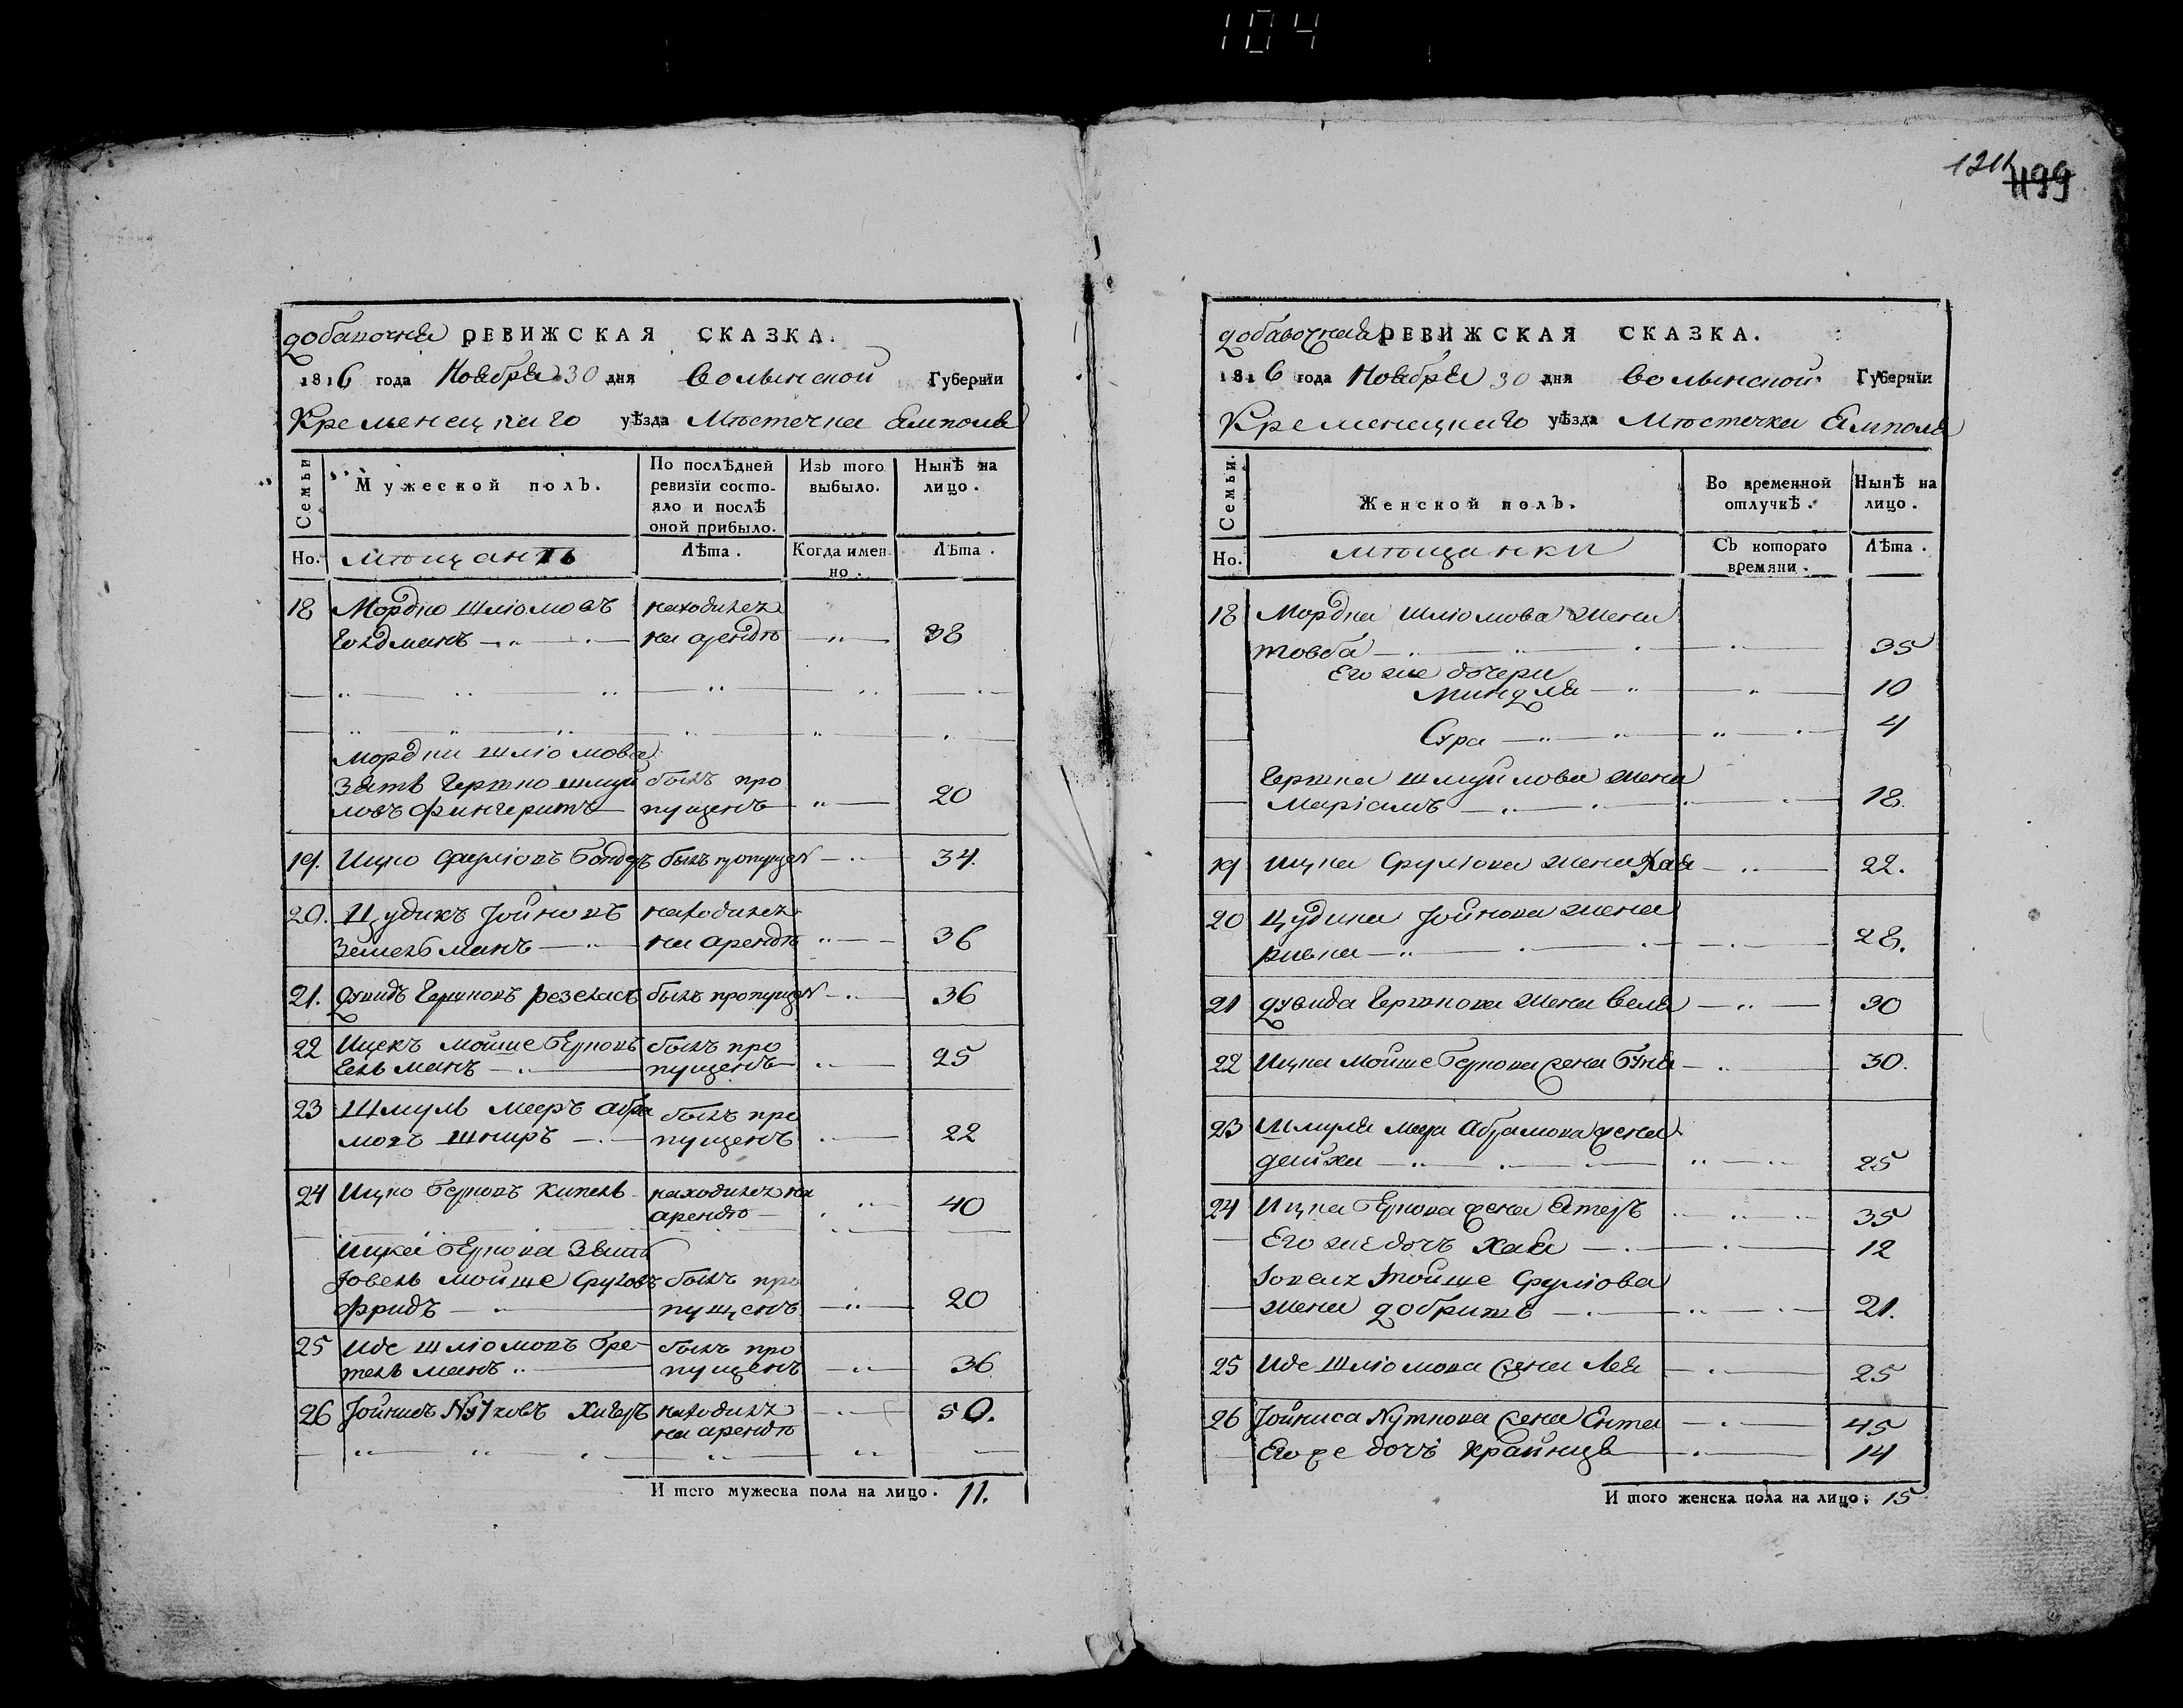 104
1211
1199
добавочная РЕВИЖСКАЯ СКАЗКА.
1816 года Ноября 30 дня Волынской Губернїи
Кременецкаго уѣзда Мѣстечка Ямполя
Семьи
Мужеской полъ.
По послѣдней ревизїи состояло и послѣ оной прибыло.
Изъ того выбыло.
Нынѣ на лицо.
Но. мѣщанъ
Лѣта.
Когда именно.
Лѣта.
18 Мордко Шліомовъ находился
Голдманъ на арендѣ 38
Мордки Шліомова
Зять Гершко Шмуй былъ про
ловъ Фингерутъ пущенъ 20
19. Ицко Сруліовъ Бондеръ былъ пропущен 34.
20. Цудикъ Іойновъ находился
Зейгельманъ на арендѣ 36
21. Дувидъ Гершковъ былъ пропущен 36
22 Ицекъ Мойше Берковъ былъ про
Гельманъ пущенъ 25
23 Шмуль Мееръ Абра былъ про
мовъ Шниръ пущенъ 22
24 Ицко Берковъ находился на
арендѣ 40
Ицка Беркова Зять
Іовель Мойше Сруловъ былъ про
Фридъ пущенъ 20
25 Иде Шліомовъ Бре- былъ про
тельманъ пущенъ 36
26 Іойнисъ находился 50.
на арендѣ
И того мужеска пола на лицо. 11.
добавочная РЕВИЖСКАЯ СКАЗКА.
1816 года Ноября 30 дня Волынской Губернїи
Кременецкаго уѣзда Мѣстечка Ямполя
Семьи.
Женской полъ.
Во временной отлучкѣ.
Нынѣ на лицо.
Но. мѣщанки
Съ котораго времяни.
Лѣта.
18 Мордка Шліомова жена
товба 35
Его же дочери
Миндля 10
Сура 4
Гершка Шмуйлова жена
Маріамъ 18.
19 Ицка Сруліова жена Хая 22.
20 Цудика Іойнова жена
Ривка 28.
21 Дувида Гершкова жена Беля 30
22 Ицка Мойше Беркова жена Буня 30.
23 Шмуля Меера Абрамова жена
Дейха 25
24 Ицка Беркова жена Естеръ 35
Его же дочъ Хая 12
Іовеля Мойше Сруліова
жена Добришъ 21.
25 Иде Шліомова жена Лея 25
26 Іойниса Нуткова жена Ента 45
Его же дочъ Крайнця 14
И того женска пола на лицо: 15